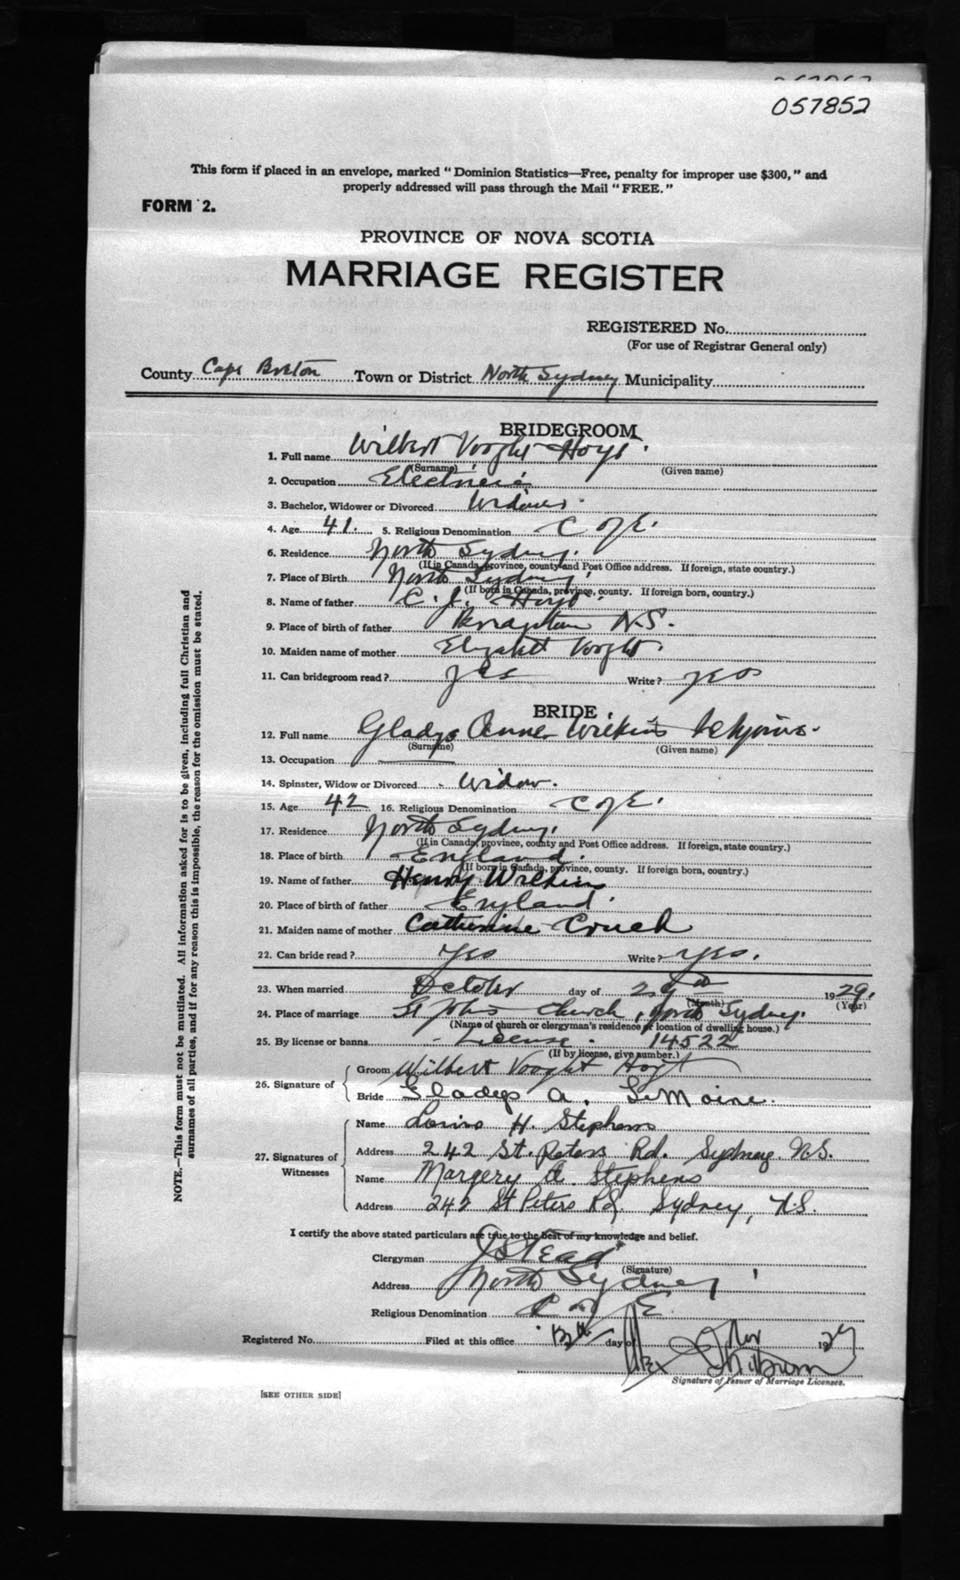 057852
This form if placed in an envelope, marked "Dominion Statistics—Free, penalty for improper use $300," and
properly addressed will pass through the Mail "FREE."
FORM 2.
PROVINCE OF NOVA SCOTIA
MARRIAGE REGISTER
REGISTERED No.
(For use of Registrar General only)
County Cape Breton Town or District North Sydney Municipality
BRIDEGROOM
1. Full name Wilbert Vooght Hoyt
(Surname) (Given name)
2. Occupation Electrician
3. Bachelor, Widower or Divorced Widower
4. Age 41. 5. Religious Denomination C of E.
6. Residence North Sydney.
(If in Canada, province, county and Post Office address. If foreign, state country.)
7. Place of Birth North Sydney
(If born in Canada, province, county. If foreign born, country.)
8. Name of father C. J. Hoyt
9. Place of birth of father N.S.
10. Maiden name of mother Elizabeth Vooght.
11. Can bridegroom read? yes Write? yes
BRIDE
12. Full name Gladys Anne Wilkins
(Surname) (Given name)
13. Occupation
14. Spinster, Widow or Divorced - Widow.
15. Age 42 16. Religious Denomination C of E.
17. Residence North Sydney.
(If in Canada, province, county and Post Office address. If foreign, state country.)
18. Place of birth England.
(If born in Canada, province, county. If foreign born, country.)
19. Name of father Henry Wilkins
20. Place of birth of father England.
21. Maiden name of mother Catherine Couch
22. Can bride read? Yes Write? yes.
23. When married October day of 29th 1929.
(Month) (Year)
24. Place of marriage St Johns Church, North Sydney.
(Name of church or clergyman's residence or location of dwelling house.)
25. By license or banns - License. 14522
(If by license, give number.)
26. Signature of
Groom Wilbert Vooght Hoyt
Bride Gladys A. LeMoine.
27. Signatures of Witnesses
Name Louis H. Stephens
Address 242 St. Peters Rd. Sydney N.S.
Name Margery A. Stephens
Address 242 St Peters Rd Sydney, N.S.
I certify the above stated particulars are true to the best of my knowledge and belief.
Clergyman J Stead
(Signature)
Address North Sydney
Religious Denomination C of E
Registered No. Filed at this office 12th day of Nov 1929
Alex
Signature of Issuer of Marriage Licenses.
[SEE OTHER SIDE]
NOTE.—This form must not be mutilated. All information asked for is to be given, including full Christian and
surnames of all parties, and if for any reason this is impossible, the reason for the omission must be stated.